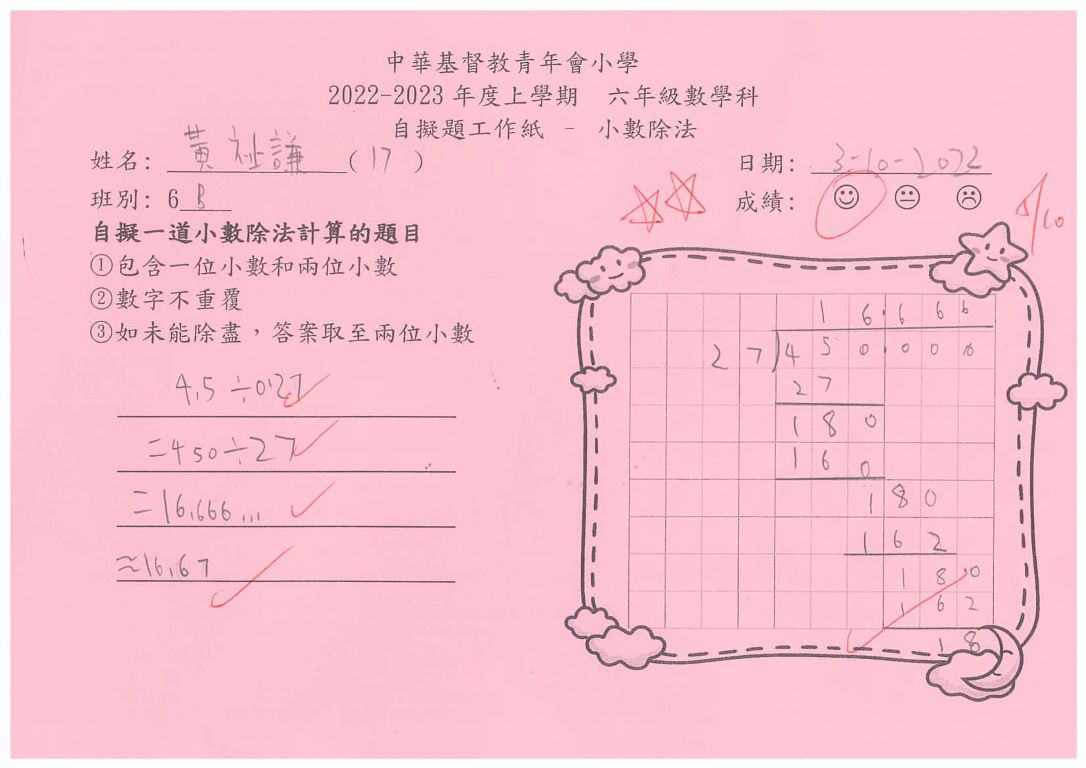 中華基督教青年會小學
2022-2023 年度上學期 六年級數學科
自擬題工作紙 - 小數除法
姓名: 黃祉謙 (17)
日期: 3-10-2022
班別: 6B
成績:
自擬一道小數除法計算的題目
①包含一位小數和兩位小數
②數字不重覆
③如未能除盡，答案取至兩位小數
4.5÷0.27
=450÷27
=16.666...
≈16.67
16.666
27)450.000
27
180
160
180
162
180
162
18